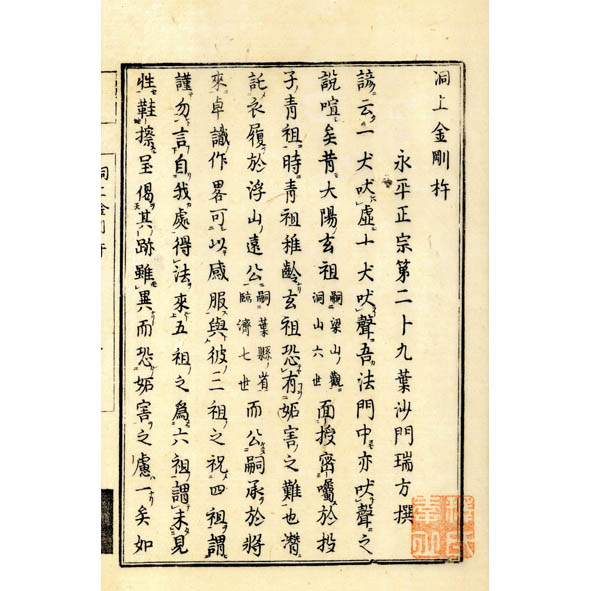 洞上金剛杵
永平正宗第二十九葉沙門瑞方撰
諺云一犬吠虛十犬吠聲吾法門中亦吠聲之
說喧矣昔大陽玄祖嗣梁山觀洞山六世面授密囑於投
子青祖時青祖稚齡玄祖恐有妬害之難也潛
託衣履於浮山遠公嗣葉縣省臨濟七世而公嗣承於將
來卓識作畧可以感服與彼二祖之祝四祖謂
謹勿言自我處得法來五祖之爲六祖謂未見
性鞋擦呈偈其跡雖異而恐妬害之慮一矣如